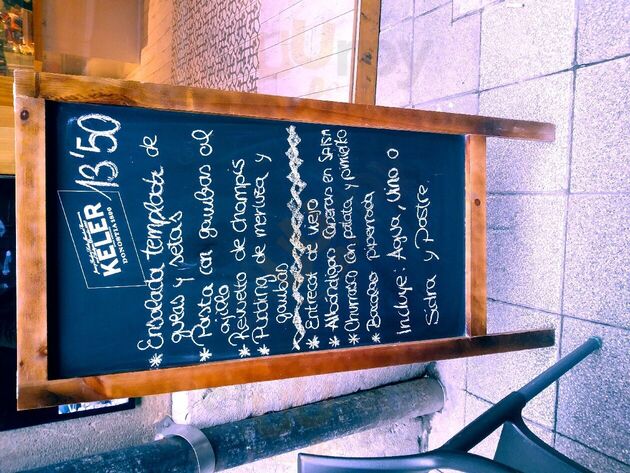 KELER
DONOSTIA 1892
13'50
* Ensalada templada de
gulas y setas
* Pasta con gambas al
ajillo
* Revuelto de champis
* Pudding de merluza y
gambas
* Entrecot de viejo
* Albóndigas Caseras en SALSA
* Churrasco con patata y pimiento
* Bacalao piperrada
Incluye: Agua, vino o
Sidra y Postre.